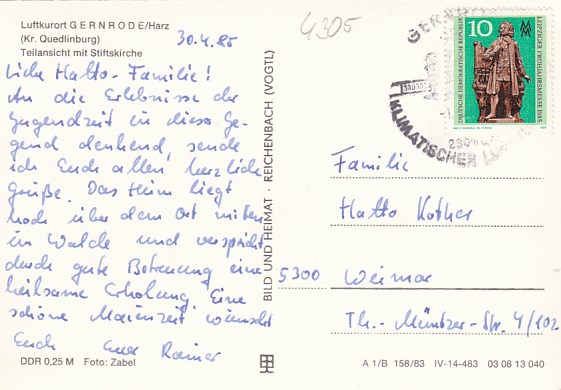 Luftkurort GERNRODE/Harz
(Kr. Quedlinburg)
Teilansicht mit Stiftskirche
30.4.85
4305
Liebe Hatto-Familie!
An die Erlebnisse der
Jugendzeit in dieser Ge-
gend denkend, sende
ich Euch allen herzliche
Grüße. Das Heim liegt
hoch über dem Ort mitten
im Walde und verspricht
durch gute Betreuung eine
heilsame Erholung. Eine
schöne Maienzeit wünscht
Euch Euer Rainer
DDR 0,25 M Foto: Zabel
BILD UND HEIMAT · REICHENBACH (VOGTL)
GERNRODE
KLIMATISCHER
10
DEUTSCHE DEMOKRATISCHE REPUBLIK
LEIPZIGER FRÜHJAHRSMESSE 1985
Familie
Hatto Kother
5300 Weimar
Th.-Müntzer-Str. 4/102
A 1/B 158/83 IV-14-483 03 08 13 040